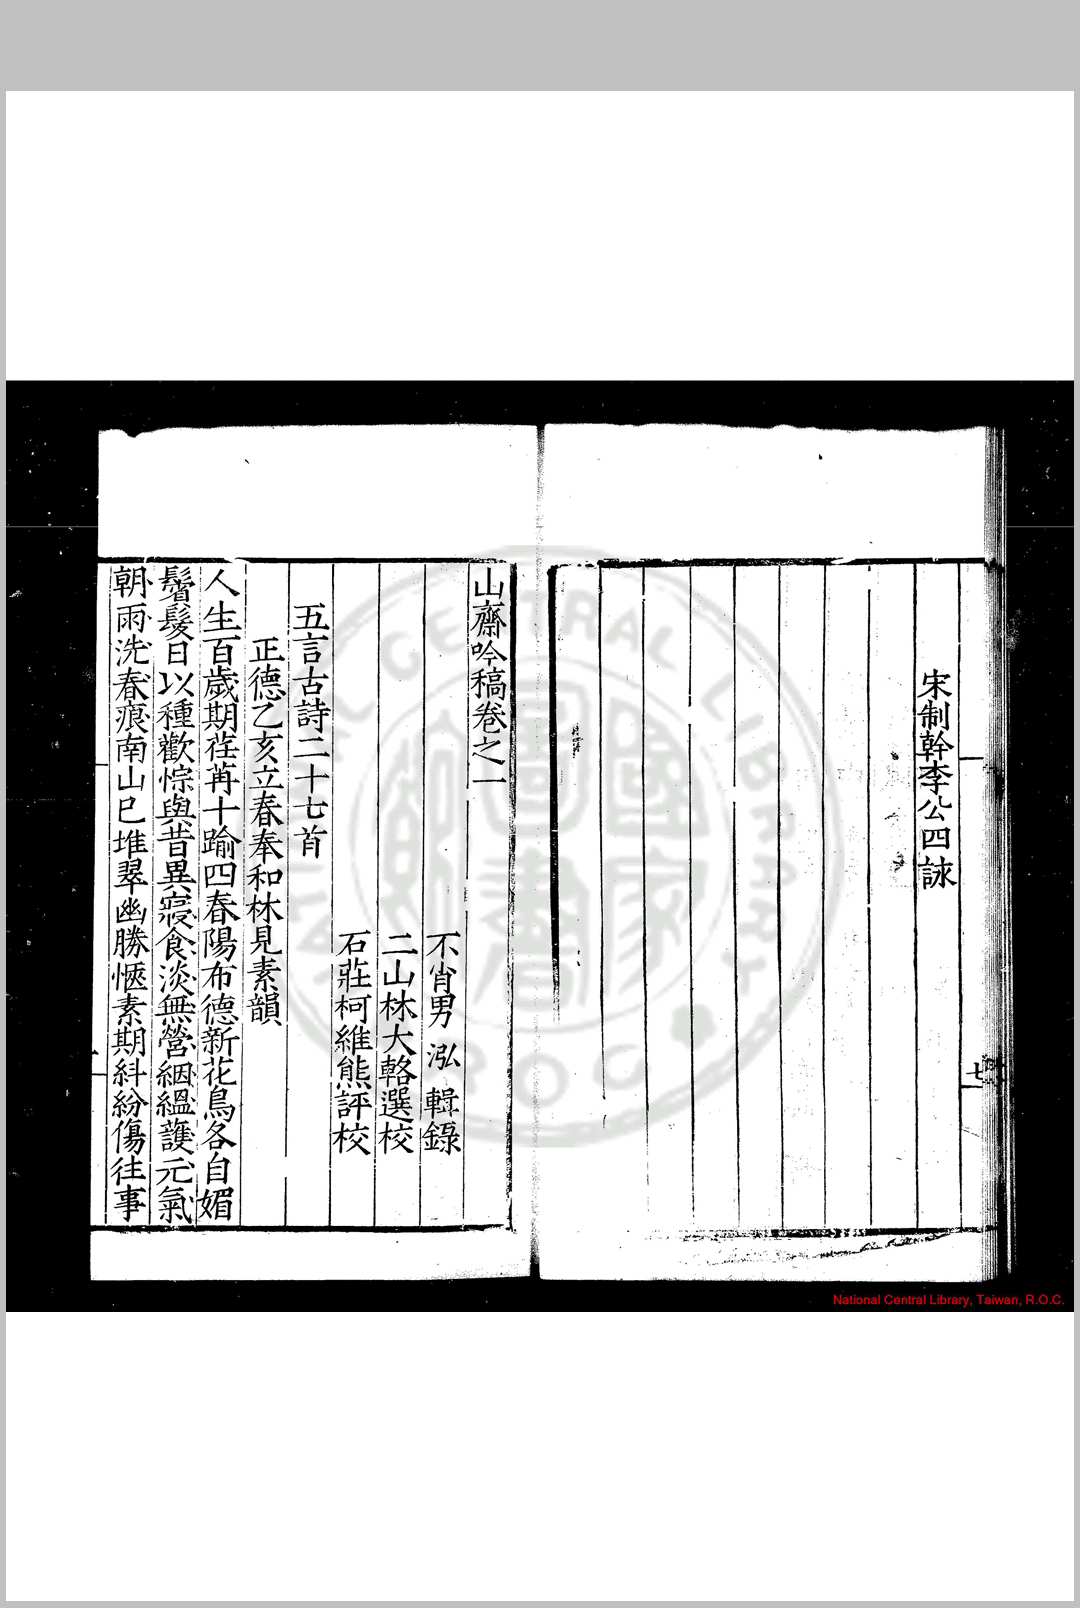 宋制幹李公四詠
七
山齋吟稿卷之一
不肖男泓輯錄
二山林大輅選校
石莊柯維熊評校
五言古詩二十七首
正德乙亥立春奉和林見素韻
人生百歲期荏苒十踰四春陽布德新花鳥各自媚
鬢髮日以種歡悰與昔異寢食淡無營絪縕護元氣
朝雨洗春痕南山已堆翠幽勝愜素期糾紛傷往事
National Central Library, Taiwan, R.O.C.